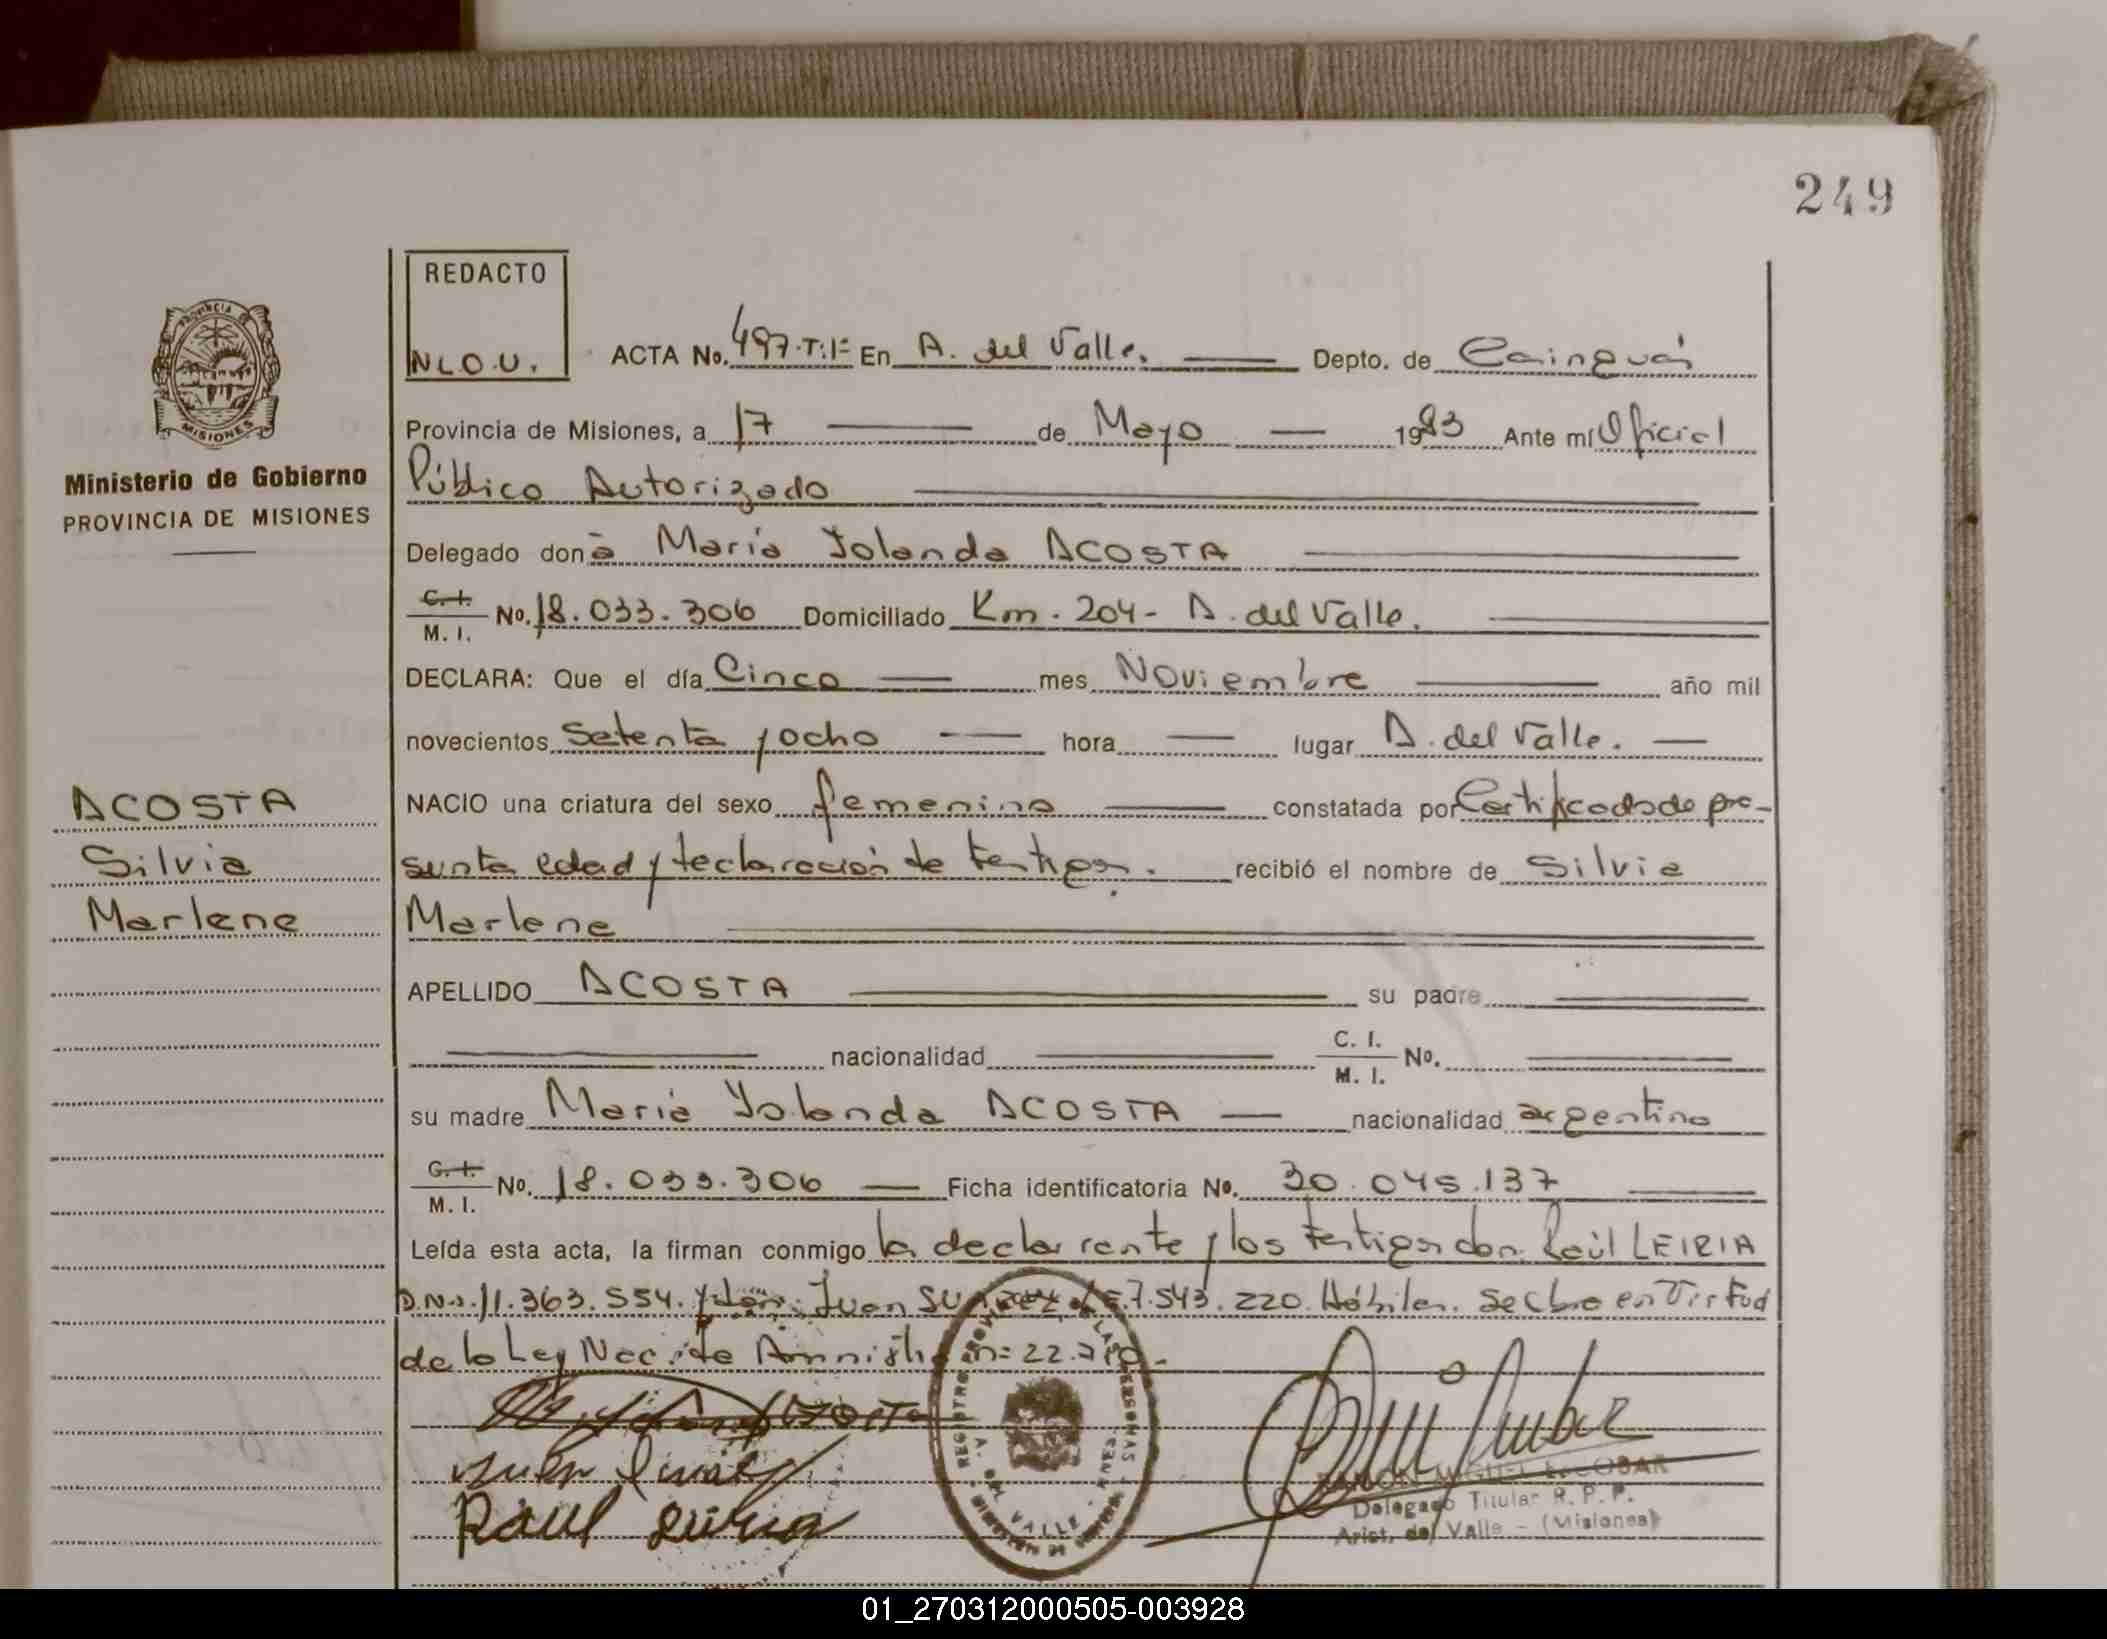 249
REDACTO
N.L.O.U.
ACTA No. 497.T:1= En A. del Valle. Depto. de Cainguás
Provincia de Misiones, a 17 de Mayo 1983 Ante mí Oficial
Ministerio de Gobierno
PROVINCIA DE MISIONES
Público Autorizado
Delegado don a María Yolanda ACOSTA
C. I. M. I. No. 18.033.306 Domiciliado Km. 204- A. del Valle.
DECLARA: Que el día Cinco mes Noviembre año mil
novecientos setenta y ocho hora lugar A. del Valle.
ACOSTA
Silvia
Marlene
NACIO una criatura del sexo femenino constatada por Certificado de pre-
sunta edad y declaración de testigos. recibió el nombre de Silvia
Marlene
APELLIDO ACOSTA su padre
nacionalidad C. I. M. I. No.
su madre María Yolanda ACOSTA nacionalidad argentina
C. I. M. I. No. 18.033.306 Ficha identificatoria No. 30.045.137
Leída esta acta, la firman conmigo la declarante y los testigos don Raúl LEIRIA
D.N.I. 11.363.554. y don: Juan 7.543.220. Hábiles. Se Labró en Virtud
de la Ley Nac. de Amnistía n= 22.
Raul Leiria
REGISTRO PROVINCIAL DE LAS PERSONAS
A. DEL VALLE
RAMON MIGUEL ESCOBAR
Delegado Titular R. P. P.
Arist. del Valle - (Misiones)
01_270312000505-003928